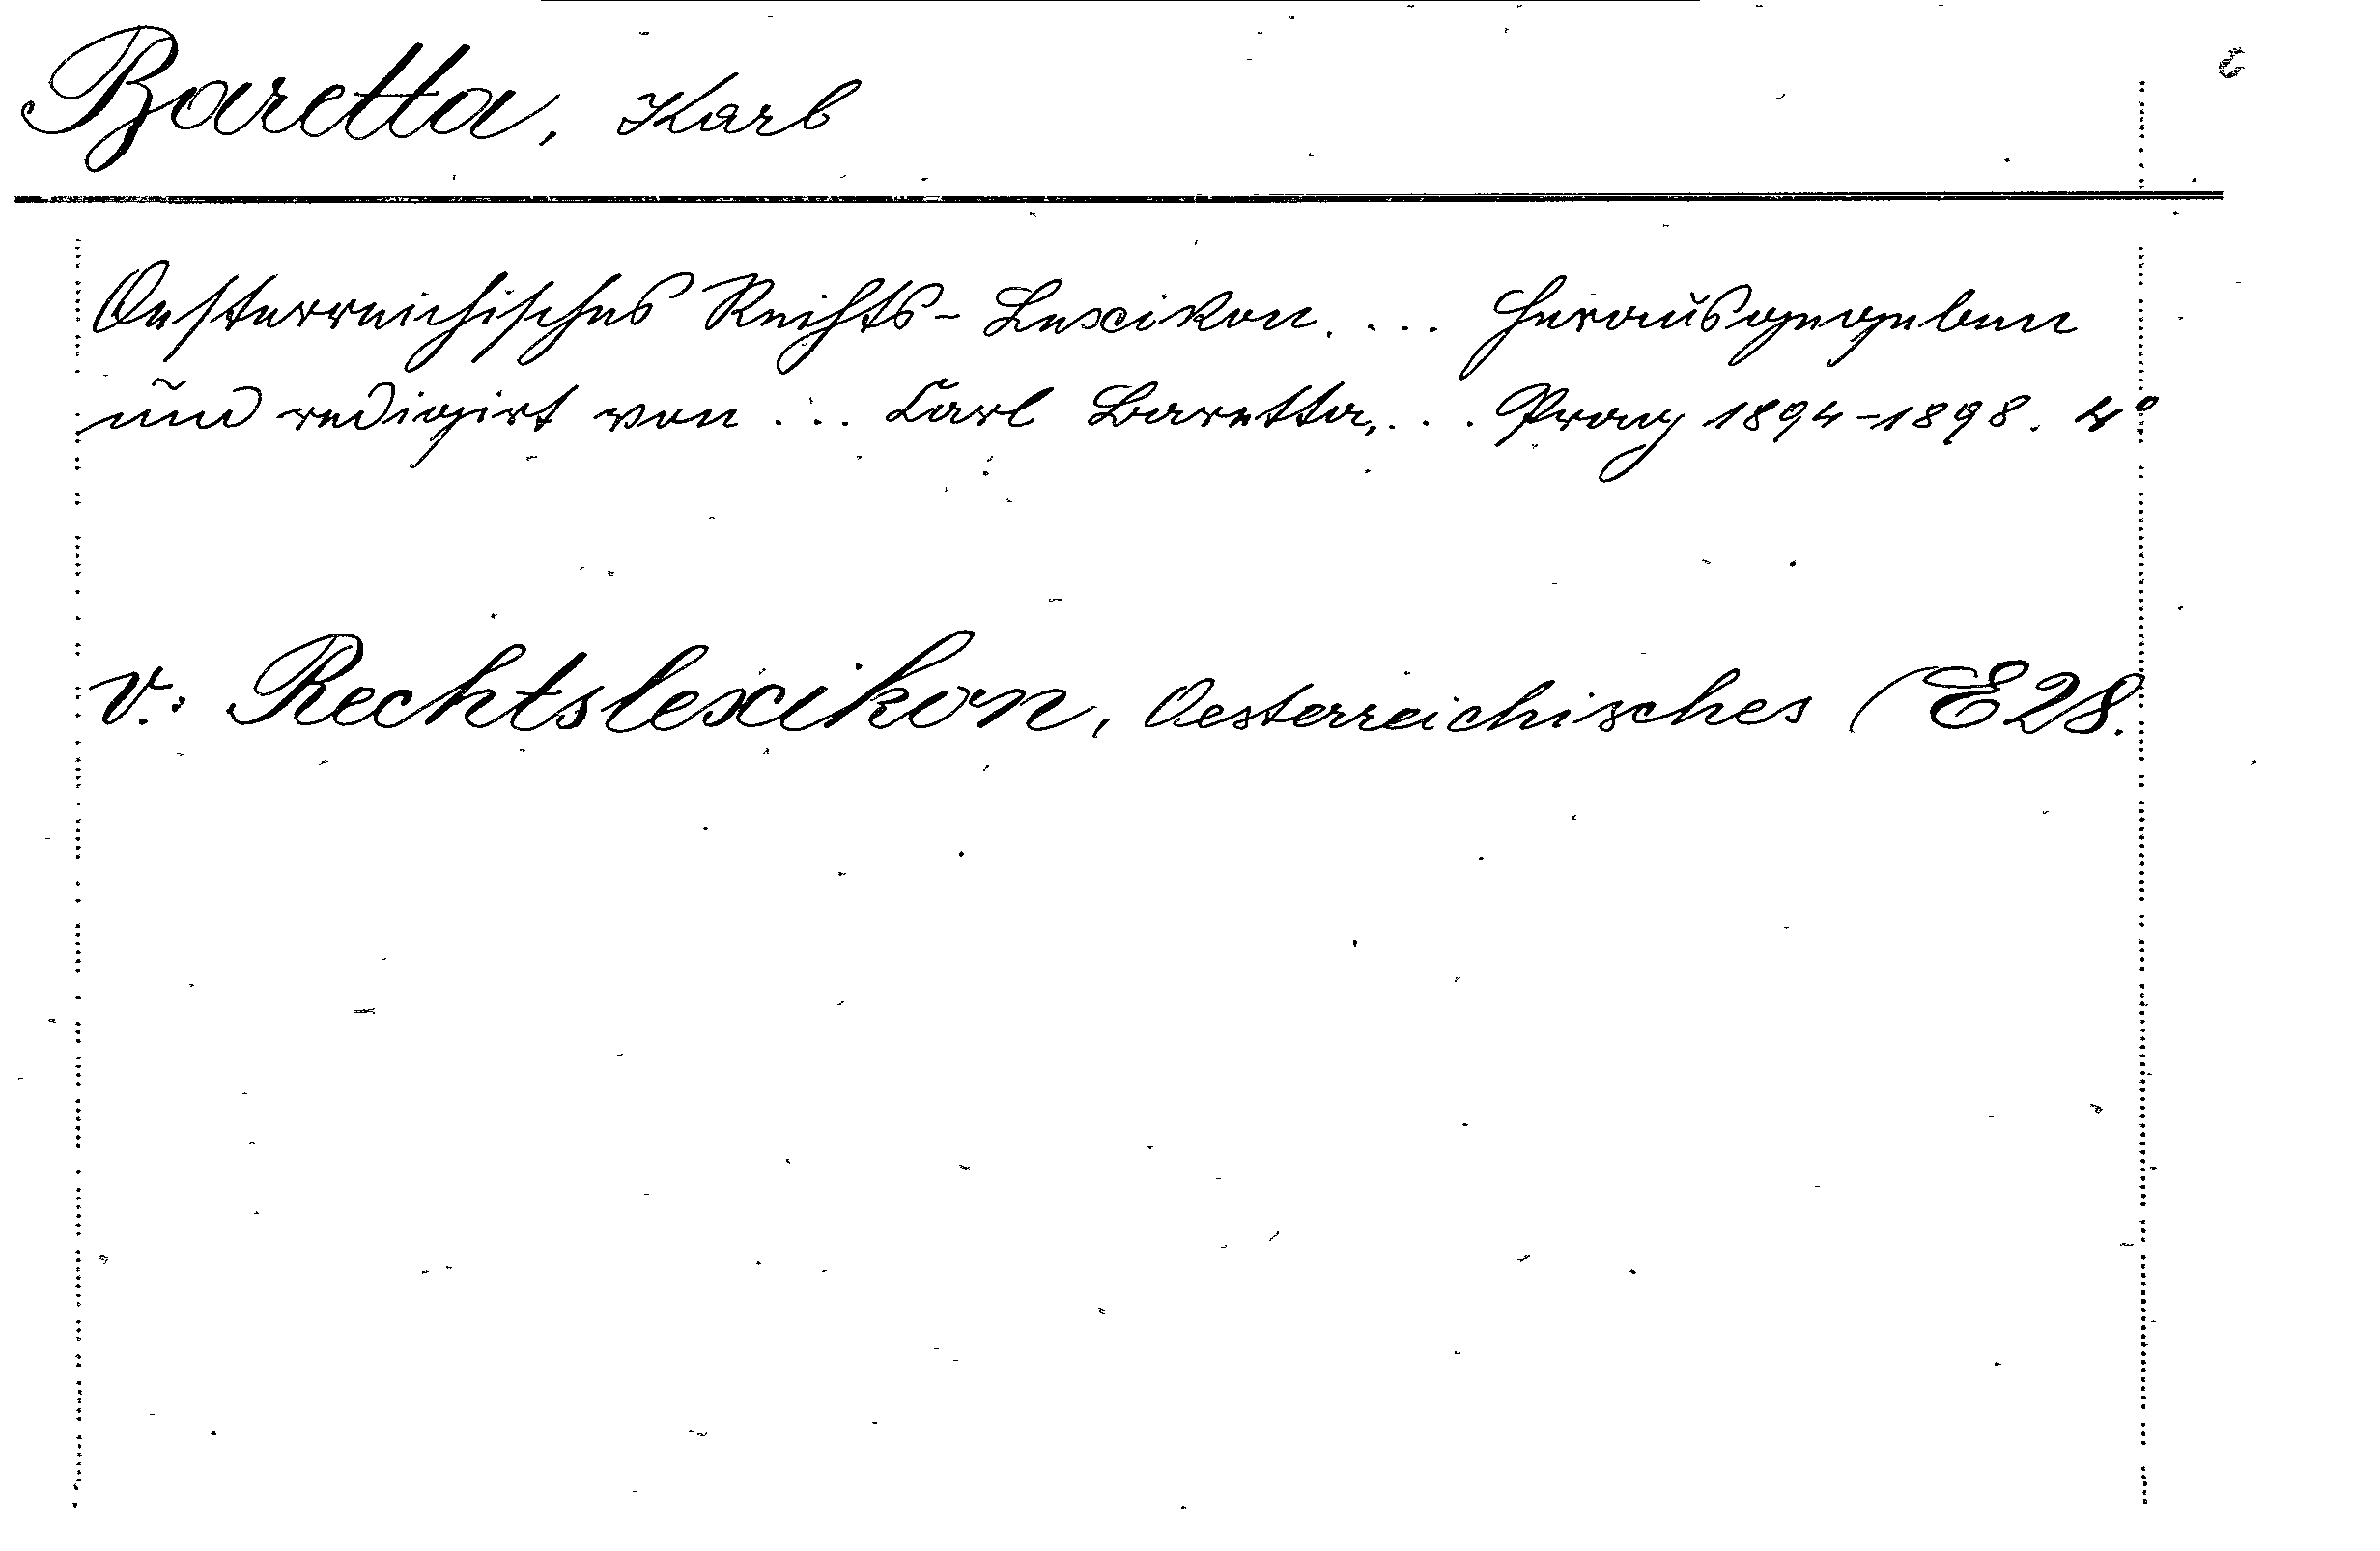 Baretta, Karl
Oesterreichisches Rechts-Lexikon. ... Herausgegeben
und redigirt von ... Carl Baretta, ... Prag 1894-1898. 4°
v.: Rechtslexikon, Oesterreichisches (E28.